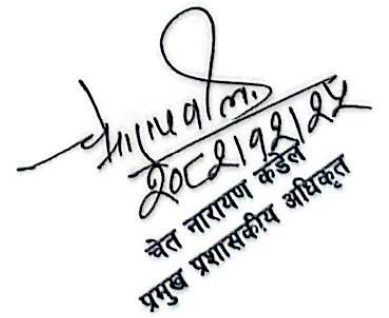 २०८२।१२।२५
चेत नारायण कंडेल
प्रमुख प्रशासकीय अधिकृत